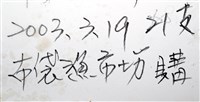 2003. 3. 19 21支
布袋漁市場購